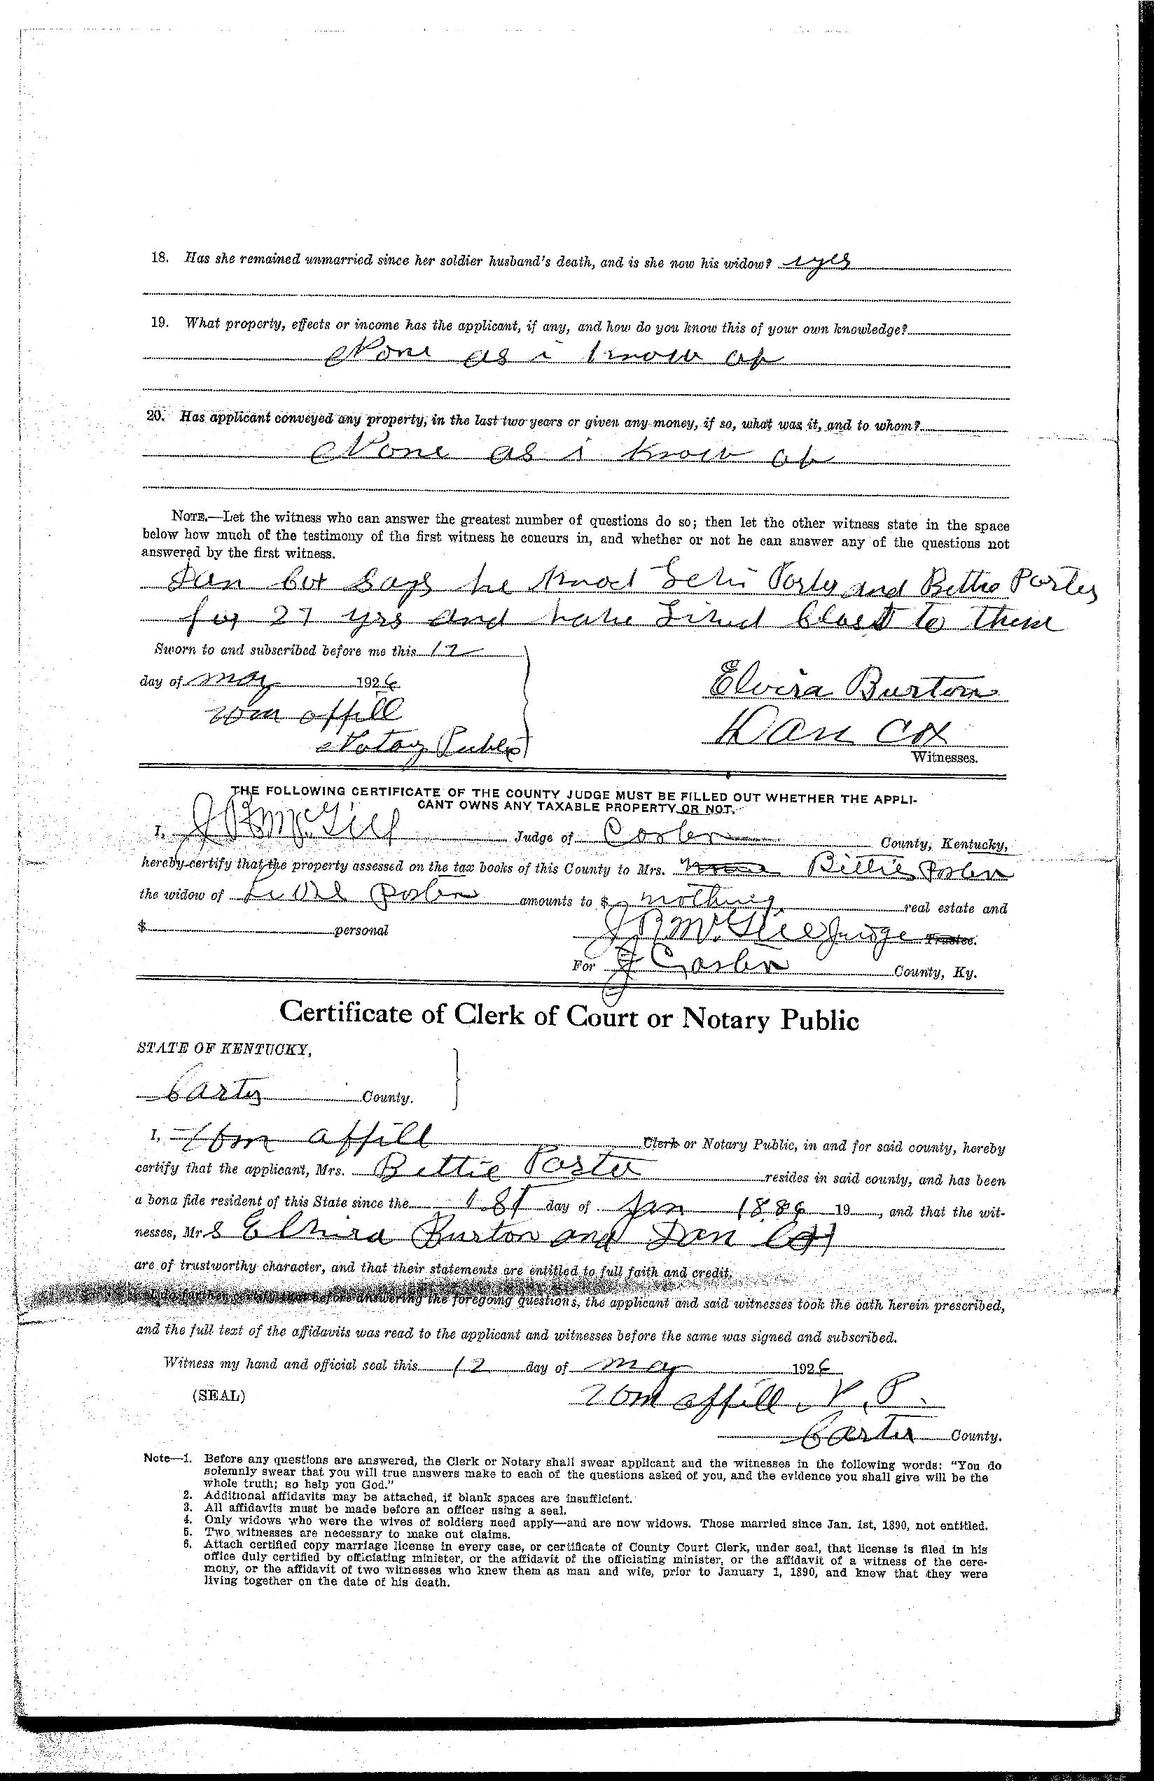 18. Has she remained unmarried since her soldier husband's death, and is she now his widow? yes
19. What property, effects or income has the applicant, if any, and how do you know this of your own knowledge?
None as i know of
20. Has applicant conveyed any property, in the last two years or given any money, if so, what was it, and to whom?
None as i know of
NOTE.—Let the witness who can answer the greatest number of questions do so; then let the other witness state in the space
below how much of the testimony of the first witness he concurs in, and whether or not he can answer any of the questions not
answered by the first witness.
Dan Cox Says he knod Porter and Bettie Porter
for 27 yrs and have Lived Close to them
Sworn to and subscribed before me this 12
day of may 1926
Wm affill
Notay Public
Elvira Burton
Dan Cox
Witnesses.
THE FOLLOWING CERTIFICATE OF THE COUNTY JUDGE MUST BE FILLED OUT WHETHER THE APPLI-
CANT OWNS ANY TAXABLE PROPERTY OR NOT.
I, Judge of County, Kentucky,
hereby certify that the property assessed on the tax books of this County to Mrs. Bettie Porter
the widow of Porter amounts to $ nothing real estate and
$ personal Judge Trustee.
For County, Ky.
Certificate of Clerk of Court or Notary Public
STATE OF KENTUCKY,
Carter County.
I, Wm affill Clerk or Notary Public, in and for said county, hereby
certify that the applicant, Mrs. Bettie Porter resides in said county, and has been
a bona fide resident of this State since the 1st day of Jan 1886 19 , and that the wit-
nesses, Mrs Elvira Burton and Dan Cox
are of trustworthy character, and that their statements are entitled to full faith and credit.
before answering the foregoing questions, the applicant and said witnesses took the oath herein prescribed,
and the full text of the affidavits was read to the applicant and witnesses before the same was signed and subscribed.
Witness my hand and official seal this 12 day of may 1926
(SEAL) Wm affill N. P.
Carter County.
Note—1. Before any questions are answered, the Clerk or Notary shall swear applicant and the witnesses in the following words: "You do
solemnly swear that you will true answers make to each of the questions asked of you, and the evidence you shall give will be the
whole truth; so help you God."
2. Additional affidavits may be attached, if blank spaces are insufficient.
3. All affidavits must be made before an officer using a seal.
4. Only widows who were the wives of soldiers need apply—and are now widows. Those married since Jan. 1st, 1890, not entitled.
5. Two witnesses are necessary to make out claims.
6. Attach certified copy marriage license in every case, or certificate of County Court Clerk, under seal, that license is filed in his
office duly certified by officiating minister, or the affidavit of the officiating minister, or the affidavit of a witness of the cere-
mony, or the affidavit of two witnesses who knew them as man and wife, prior to January 1, 1890, and knew that they were
living together on the date of his death.